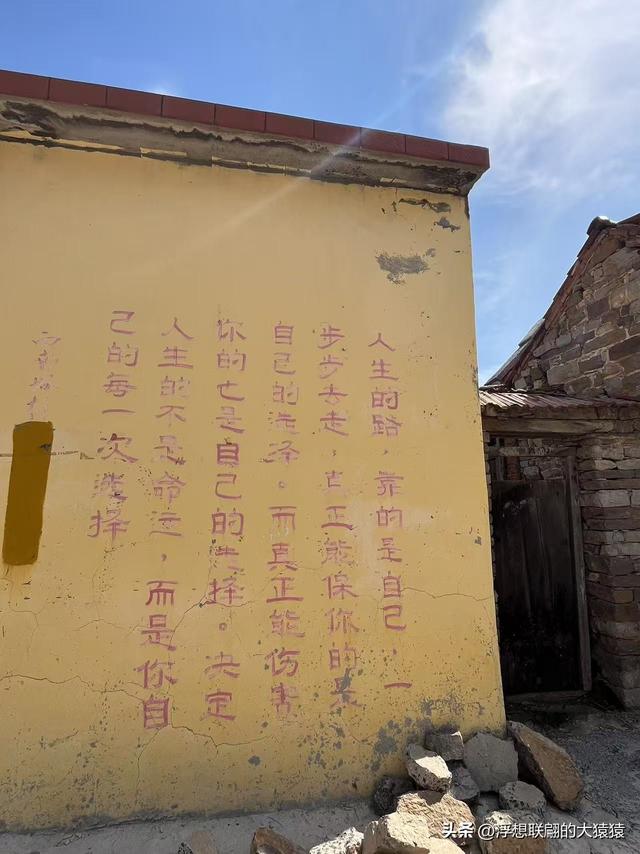 人生的路，靠的是自己，一
步步去走，真正能保你的是
自己的选择。而真正能伤害
你的也是自己的选择。决定
人生的不是命运，而是你自
己的每一次选择
头条 @浮想联翩的大猿猿